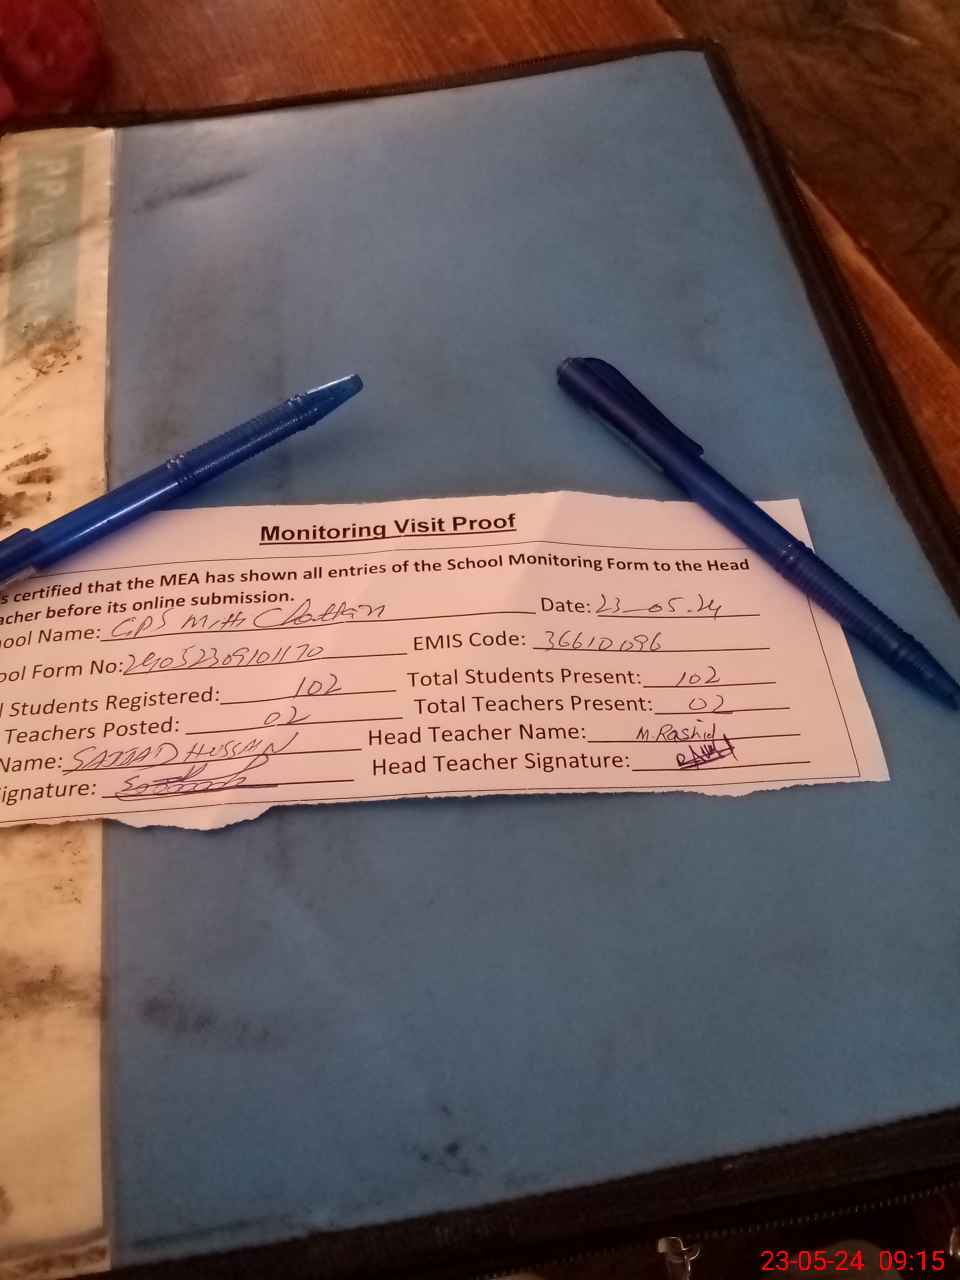 Monitoring Visit Proof
s certified that the MEA has shown all entries of the School Monitoring Form to the Head
acher before its online submission.
ool Name: GPS Mithi Chattan Date: 23_05.24
ool Form No: 24052309101170 EMIS Code: 36610096
l Students Registered: 102 Total Students Present: 102
Teachers Posted: 02 Total Teachers Present: 02
Name: SAJJAD HUSSAIN Head Teacher Name: M.Rashid
ignature: Head Teacher Signature:
23-05-24 09:15